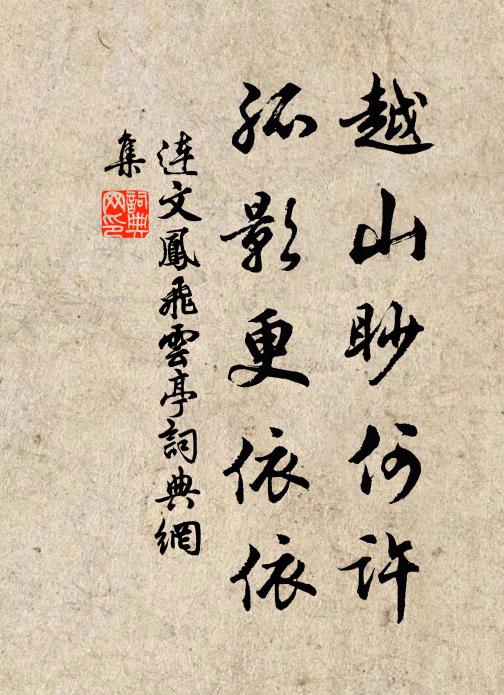 越山眇何許
孤影更依依
連文鳳飛雲亭詞典網
集
詞典网印